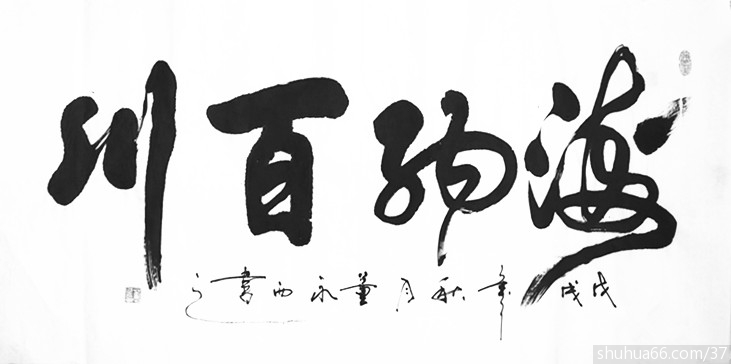 海纳百川
戊戌年秋月董永西書之
shuhua66.com/37